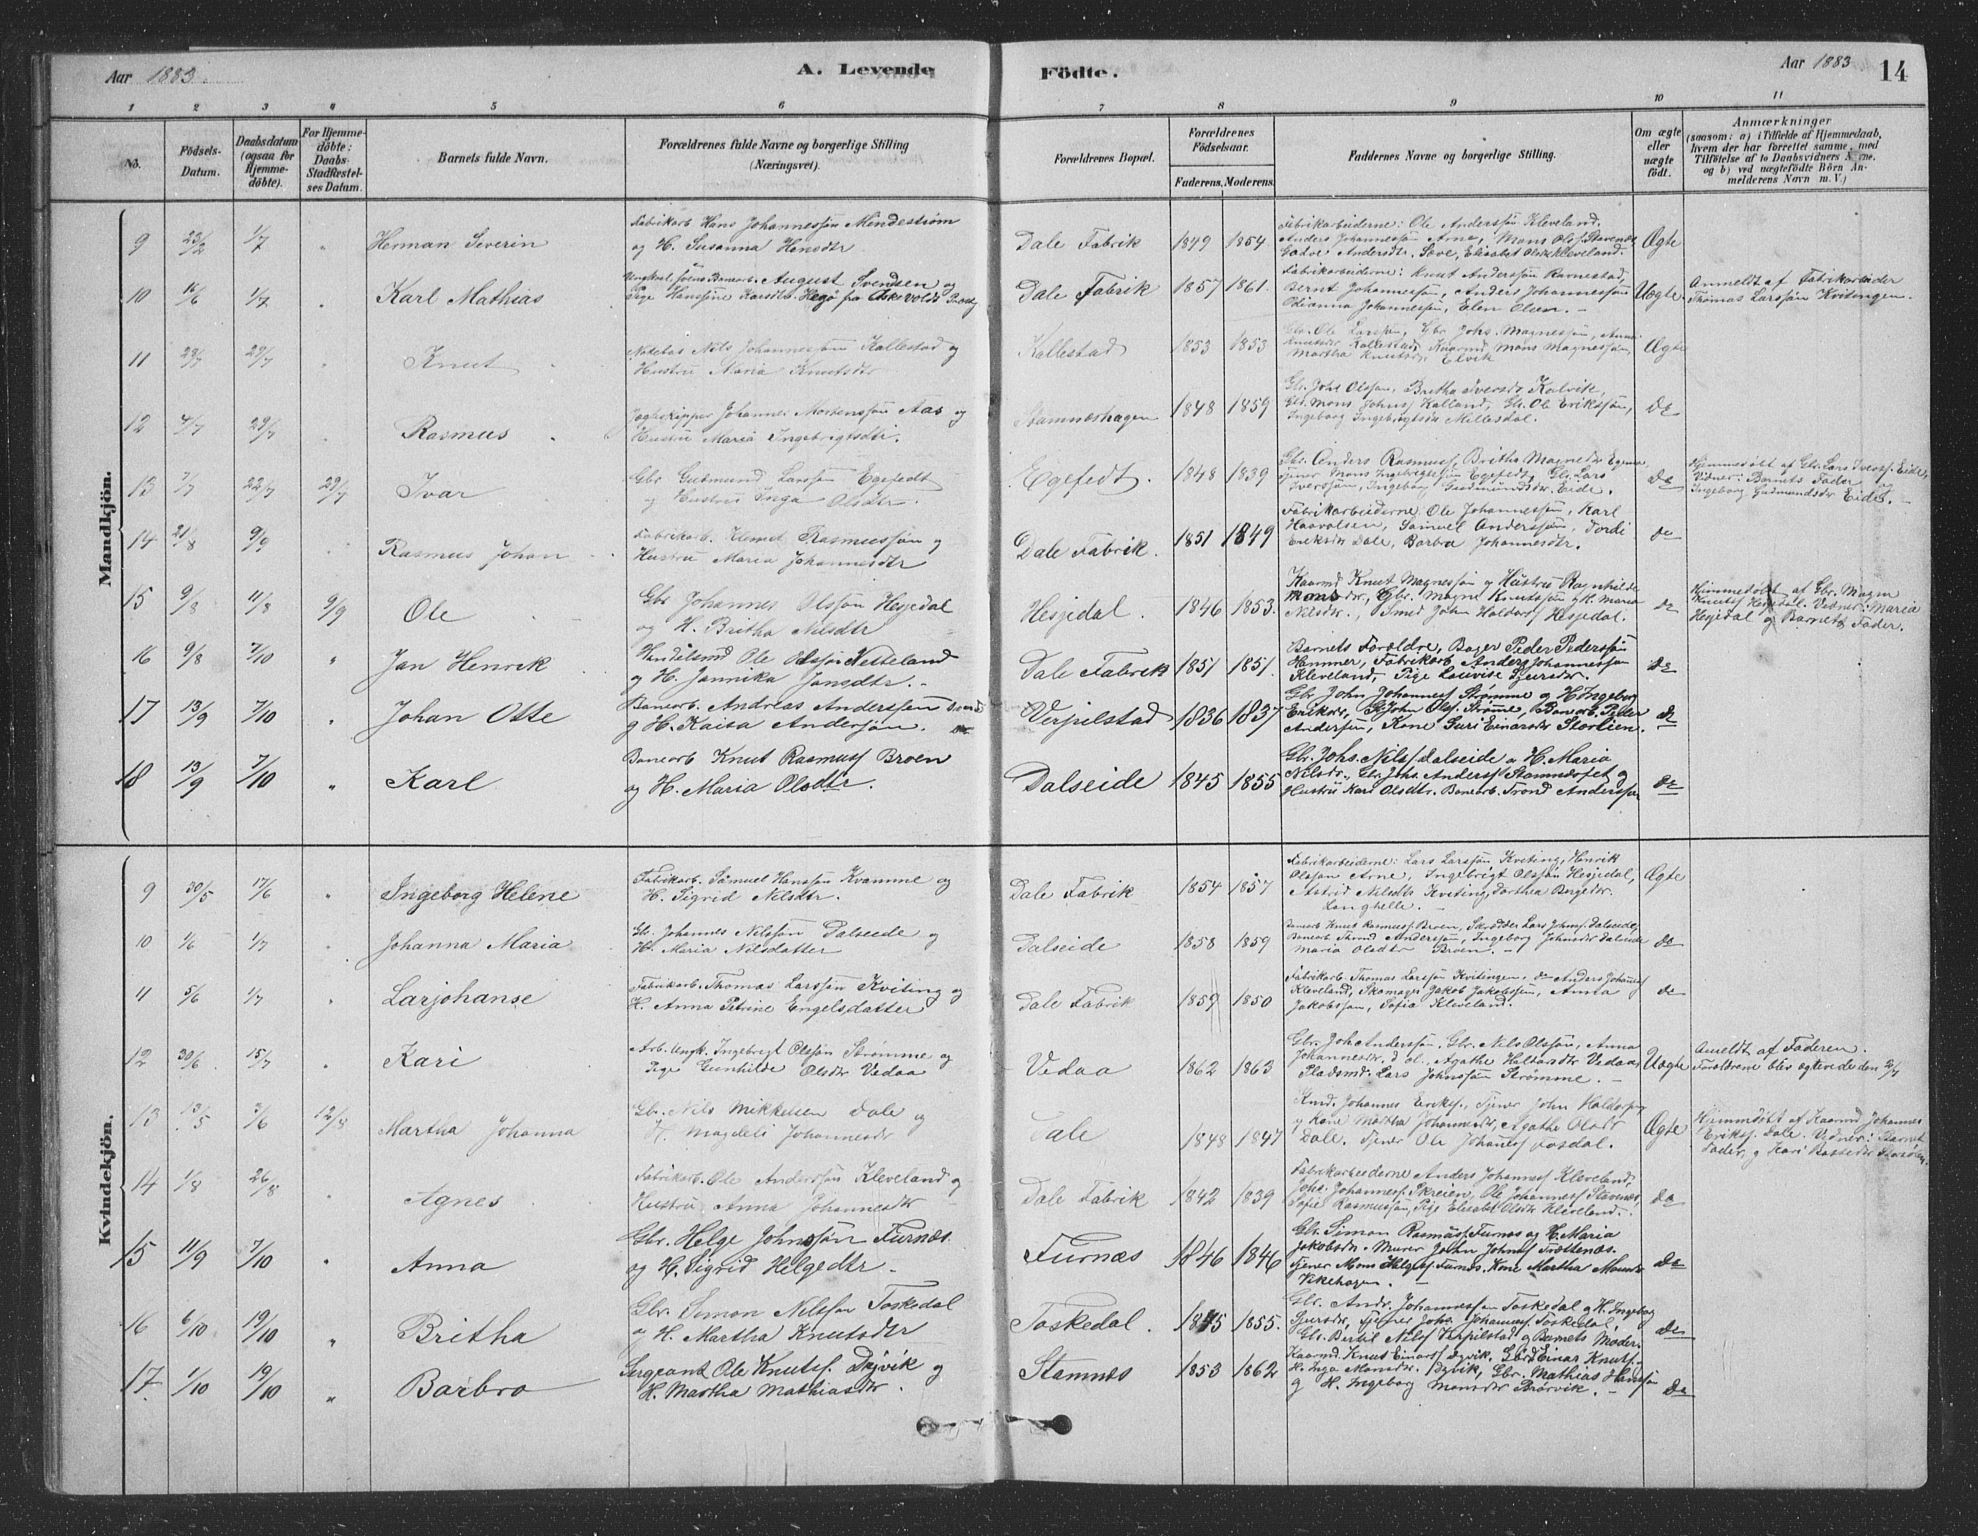 Aar 1883.
A. Levende Födte.
Aar 1883
14
1 2 3 4 5 6 7 8 9 10 11
No.
Födsels-Datum.
Daabsdatum (ogsaa for Hjemmedöbte).
For Hjemmedöbte: Daabs-Stadfæstelses Datum.
Barnets fulde Navn.
Forældrenes fulde Navne og borgerlige Stilling (Næringsvei).
Forældrenes Bopæl.
Forældrenes Födselsaar.
Faderens. Moderens.
Faddernes Navne og borgerlige Stilling.
Om ægte eller uægte födt.
Anmærkninger
(saasom: a) i Tilfælde af Hjemmedaab, hvem der har forrettet samme, med Tilföielse af to Daabsvidners Navne, og b) ved uægtefödte Börn Anmelderens Navn m. V.)
Mandkjön.
9 23/2 1/7 " Herman Severin
Fabrikarb Hans Johannessøn Mindestrøm
og H. Susanna Hensdtr
Dale Fabrik 1849 1854
Fabrikarbeiderne: Ole Anderssøn Kleveland,
Anders Johannessøn Arne, Mons Ols. Stavenes
Kleveland.
Ægte
10 11/6 1/7 " Karl Mathias
August Svendsen og
Pige
Dale Fabrik 1857 1861.
Fabrikarbeiderne: Knut Anderssøn Barnestad,
Bernt Johannessøn, Anders Johannessøn
Odianna Johannessøn, Elen Olsen. -
Uægte
Anmeldt af Fabrikarbeider
Thomas Larssøn Kvitingen.
11 29/7 " Knut
Nils Johannessøn Kallestad og
Hustru Maria Knutsdtr
Kallestad 1853 1853
Gbr. Ole Larssøn, Gbr Johs. Magnessøn,
Kallestad, Kaarmd Mons Magnessøn,
Martha Knutsdr, Elvik
Ægte
12 4/7 29/7 " Rasmus
Jagtskipper Johannes Mortenssøn Aas og
Hustru Maria Ingebrigtsdtr.
Stamneshagen 1848 1859
Gbr. Johs Olssøn, Britha Iversdr Kalvik,
Gbr. Mons Johns. Kalland, Gbr. Ole Erikssøn,
Ingeborg Ingebrigtsdr Millesdal.
do
13 7/7 22/7 29/7 Ivar
Gbr Gudmund Larssøn Egefedt
og Hustru Inga Olsdtr.
Egefedt. 1848 1839
Gbr. Anders Rasmuss, Britha Magnesdr
Tjener Mons Ingebrigtssøn Egefedt, Gbr. Lars
Iverssøn, Ingeborg Gudmundsdr. Eide.
do
Hjemmedøbt af Gbr. Lars Iverss. Eide,
Vidner: Barnets Fader
Ingeborg Gudmundsdr Eide. -
14 21/8 9/9 " Rasmus Johan
Fabrikarb. Klemet Rasmussøn og
Hustru Maria Johannesdtr
Dale Fabrik. 1851 1849
Fabrikarbeiderne Ole Johannessøn, Karl
Haavalsen, Samuel Anderssøn, Tordi
Eriksdr Dale, Barbra Johannesdtr.
do
15 9/8 11/8 9/9 Ole
Gbr Johannes Olssøn Hesjedal
og H. Britha Nilsdtr
Hesjedal 1846 1853.
Kaarmd Knut Magnessøn og Hustru Ragnhilde
Monsdr, Gbr. Magne Knutssøn og H. Maria
Nilsdr., Smed John Haldors. Hesjedal.
do
Hjemmedøbt af Gbr. Magne
Knuts. Hesjedal. Vidner: Maria
Hesjedal og Barnets Fader.
16 9/8 7/10 " Jan Henrik
Handelsmd Ole Olssøn Netteland
og H. Jannika Jansdtr. -
Dale Fabrik 1851 1851.
Barnets Forældre, Bager Peder Pederssøn
Hammer, Fabrikarb Anders Johannessøn
Kleveland, Pige Louvise Sjursdr.
do
17 13/9 7/10 " Johan Otte
Banearb. Andreas Anderssøn
og H. Kaisa Anderssøn.
Verpilstad 1836 1837
Gbr. John Johanness. Strømme og H. Ingeborg
Eriksdr, Gbr John Ols. Strømme, Banearb. Peder
Anderssøn, Kone Guri Einarsdr Storlien.
do
18 13/9 7/10 " Karl
Banearb Knut Rasmuss Broen
og H. Maria Olsdtr.
Dalseide 1845 1855
Gbr. Johs. Nilss Dalseide og H. Maria
Nilsdr., Gbr. Johs. Anderss Stamnestofet og
Hustru Kari Olsdtr. Banearb. Trond Anderssøn
do
Kvindekjön.
9 30/5 17/6 " Ingeborg Helene
Fabrikarb. Samuel Hanssøn Kvamme og
H. Sigrid Nilsdtr.
Dale Fabrik 1854 1857
Fabrikarbeiderne: Lars Larssøn Kviting, Henrik
Olssøn Arne, Ingebrigt Olssøn Hesjedal,
Astrid Nilsdtr Kviting, Dorthea Børgesdr.
Langhelle. -
Ægte
10 1/6 1/7 " Johanna Maria
Gbr. Johannes Nilssøn Dalseide og
H. Maria Nilsdatter
Dalseide 1858 1859
Banearb Knut Rasmuss. Broen, Skrædder Lars Johns. Dalseide,
Banearb Thrond Anderssøn, Ingeborg Johnsdr Dalseide
Maria Olsdtr Broen. -
do
11 5/6 1/7 " Larjohanse
Fabrikarb. Thomas Larssøn Kviting og
H. Anna Petrine Engelsdatter
Dale Fabrik 1859 1850
Fabrikarb. Thomas Larssøn Kvitingen, do Anders Johannes
Kleveland, Skomager Jakob Jakobssøn, Anna
Jakobssøn, Sofia Kleveland.
do
12 30/6 15/7 " Kari
Arb. Ungk. Ingebrigt Olssøn Strømme og
Pige Gunhilde Olsdtr Vedaa
Vedaa 1862 1863
Gbr. Joh Anderssøn, Gbr. Nils Olssøn, Anna
Johannesdr. Agathe Haltandtr Vedaa,
Pladsmd. Lars Johnssøn Strømme. -
Uægte
Anmeldt af Faderen.
Forældrene blev ægteviede den 2/7
13 13/5 3/6 12/8 Martha Johanna
Gbr. Nils Mikkelsen Dale og
H. Magdeli Johannesdr
Dale 1848 1847
Kmd. Johannes Eriks., Tjener John Haldorss.
og Kone Martha Johannesdr, Agathe Olsdr
Dale. Tjener Ole Johanness Fosdal.
Ægte
Hjemmedøbt af Kaarmd Johannes
Eriks. Dale. Vidner: Barnets
Fader og Kari
14 1/8 26/8 " Agnes
Fabrikarb. Ole Anderssøn Kleveland og
Hustru Anna Johannesdtr
Dale Fabrik 1842 1839
Fabrikarbeiderne Anders Johanness Kleveland,
Johs. Johanness. Skreien, Ole Johanness Stavenes,
Sofie Rasmussøn, Pige Elisabet Olsdtr Kleveland. -
do
15 11/9 7/10 " Anna
Gbr. Helge Johnssøn Furnæs
og H. Sigrid Helgedtr. -
Furnæs 1846 1846
Gbr. Simon Rasmuss. Furnæs og H. Maria
Jakobsdr. Murer John Johns. Trættenæs.
Tjener Mons Helges. Furnæs. Kone Martha Monsdr
Vikehagen. -
do
16 6/10 19/10 " Britha
Gbr. Simon Nilssøn Toskedal
og H. Martha Knutsdtr
Toskedal. 1845 1855.
Gbr. Andr. Johannessøn Toskedal og H. Ingeborg
Sjursdr, Tjener Johs. Johanness. Toskedal,
Gbr. Bertil Nilss Verpilstad og Barnets Moder.
do
17 1/10 19/10 " Barbro
Sergeant Ole Knutss. Dyvik og
H. Martha Mathiasdtr.
Stamnæs 1853 1862
Kaarmd. Knut Einars Dyvik. Gbr Einar Knuts.
H. Inga Monsdr. Dyvik, Gbr. Mathias Hanssøn
og H. Ingeborg Monsdr Brørvik. -
do